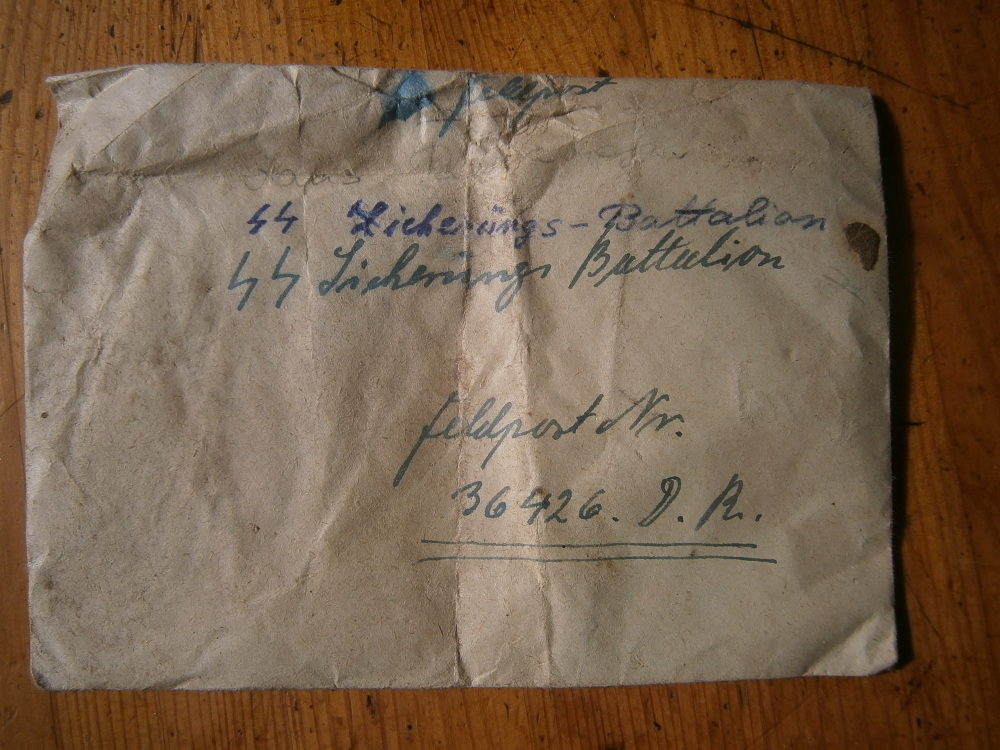 Feldpost
SS Sicherüngs-Battalion
SS Sicherüngs Battalion
Feldpost Nr.
36426. D. R.